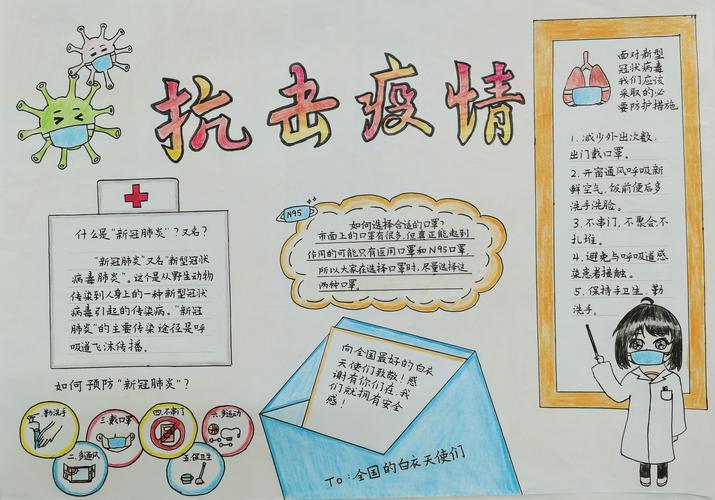 抗击疫情
什么是"新冠肺炎"？又名？
"新冠肺炎"又名"新型冠状
病毒肺炎"。这个是从野生动物
传染到人身上的一种新型冠状
病毒引起的传染病。"新冠
肺炎"的主要传染途径是呼
吸道飞沫传播。
N95
如何选择合适的口罩？
市面上的口罩有很多，但真正能起到
作用的可能只有医用口罩和N95口罩，
所以大家在选择口罩时，尽量选择这
两种口罩。
面对新型
冠状病毒
我们应该
采取的必
要防护措施
1.减少外出次数，
出门戴口罩。
2.开窗通风呼吸新
鲜空气，饭前便后多
洗手洗脸。
3.不串门，不聚会，不
扎堆。
4.避免与呼吸道感
染患者接触。
5.保持手卫生，勤
洗手。
如何预防"新冠肺炎"？
一.勤洗手
二.多通风
三.戴口罩
四.不串门
五.保卫生
六.多运动
向全国最好的白衣
天使们致敬！感
谢有你们在，我
们就拥有安全
感！
TO：全国的白衣天使们